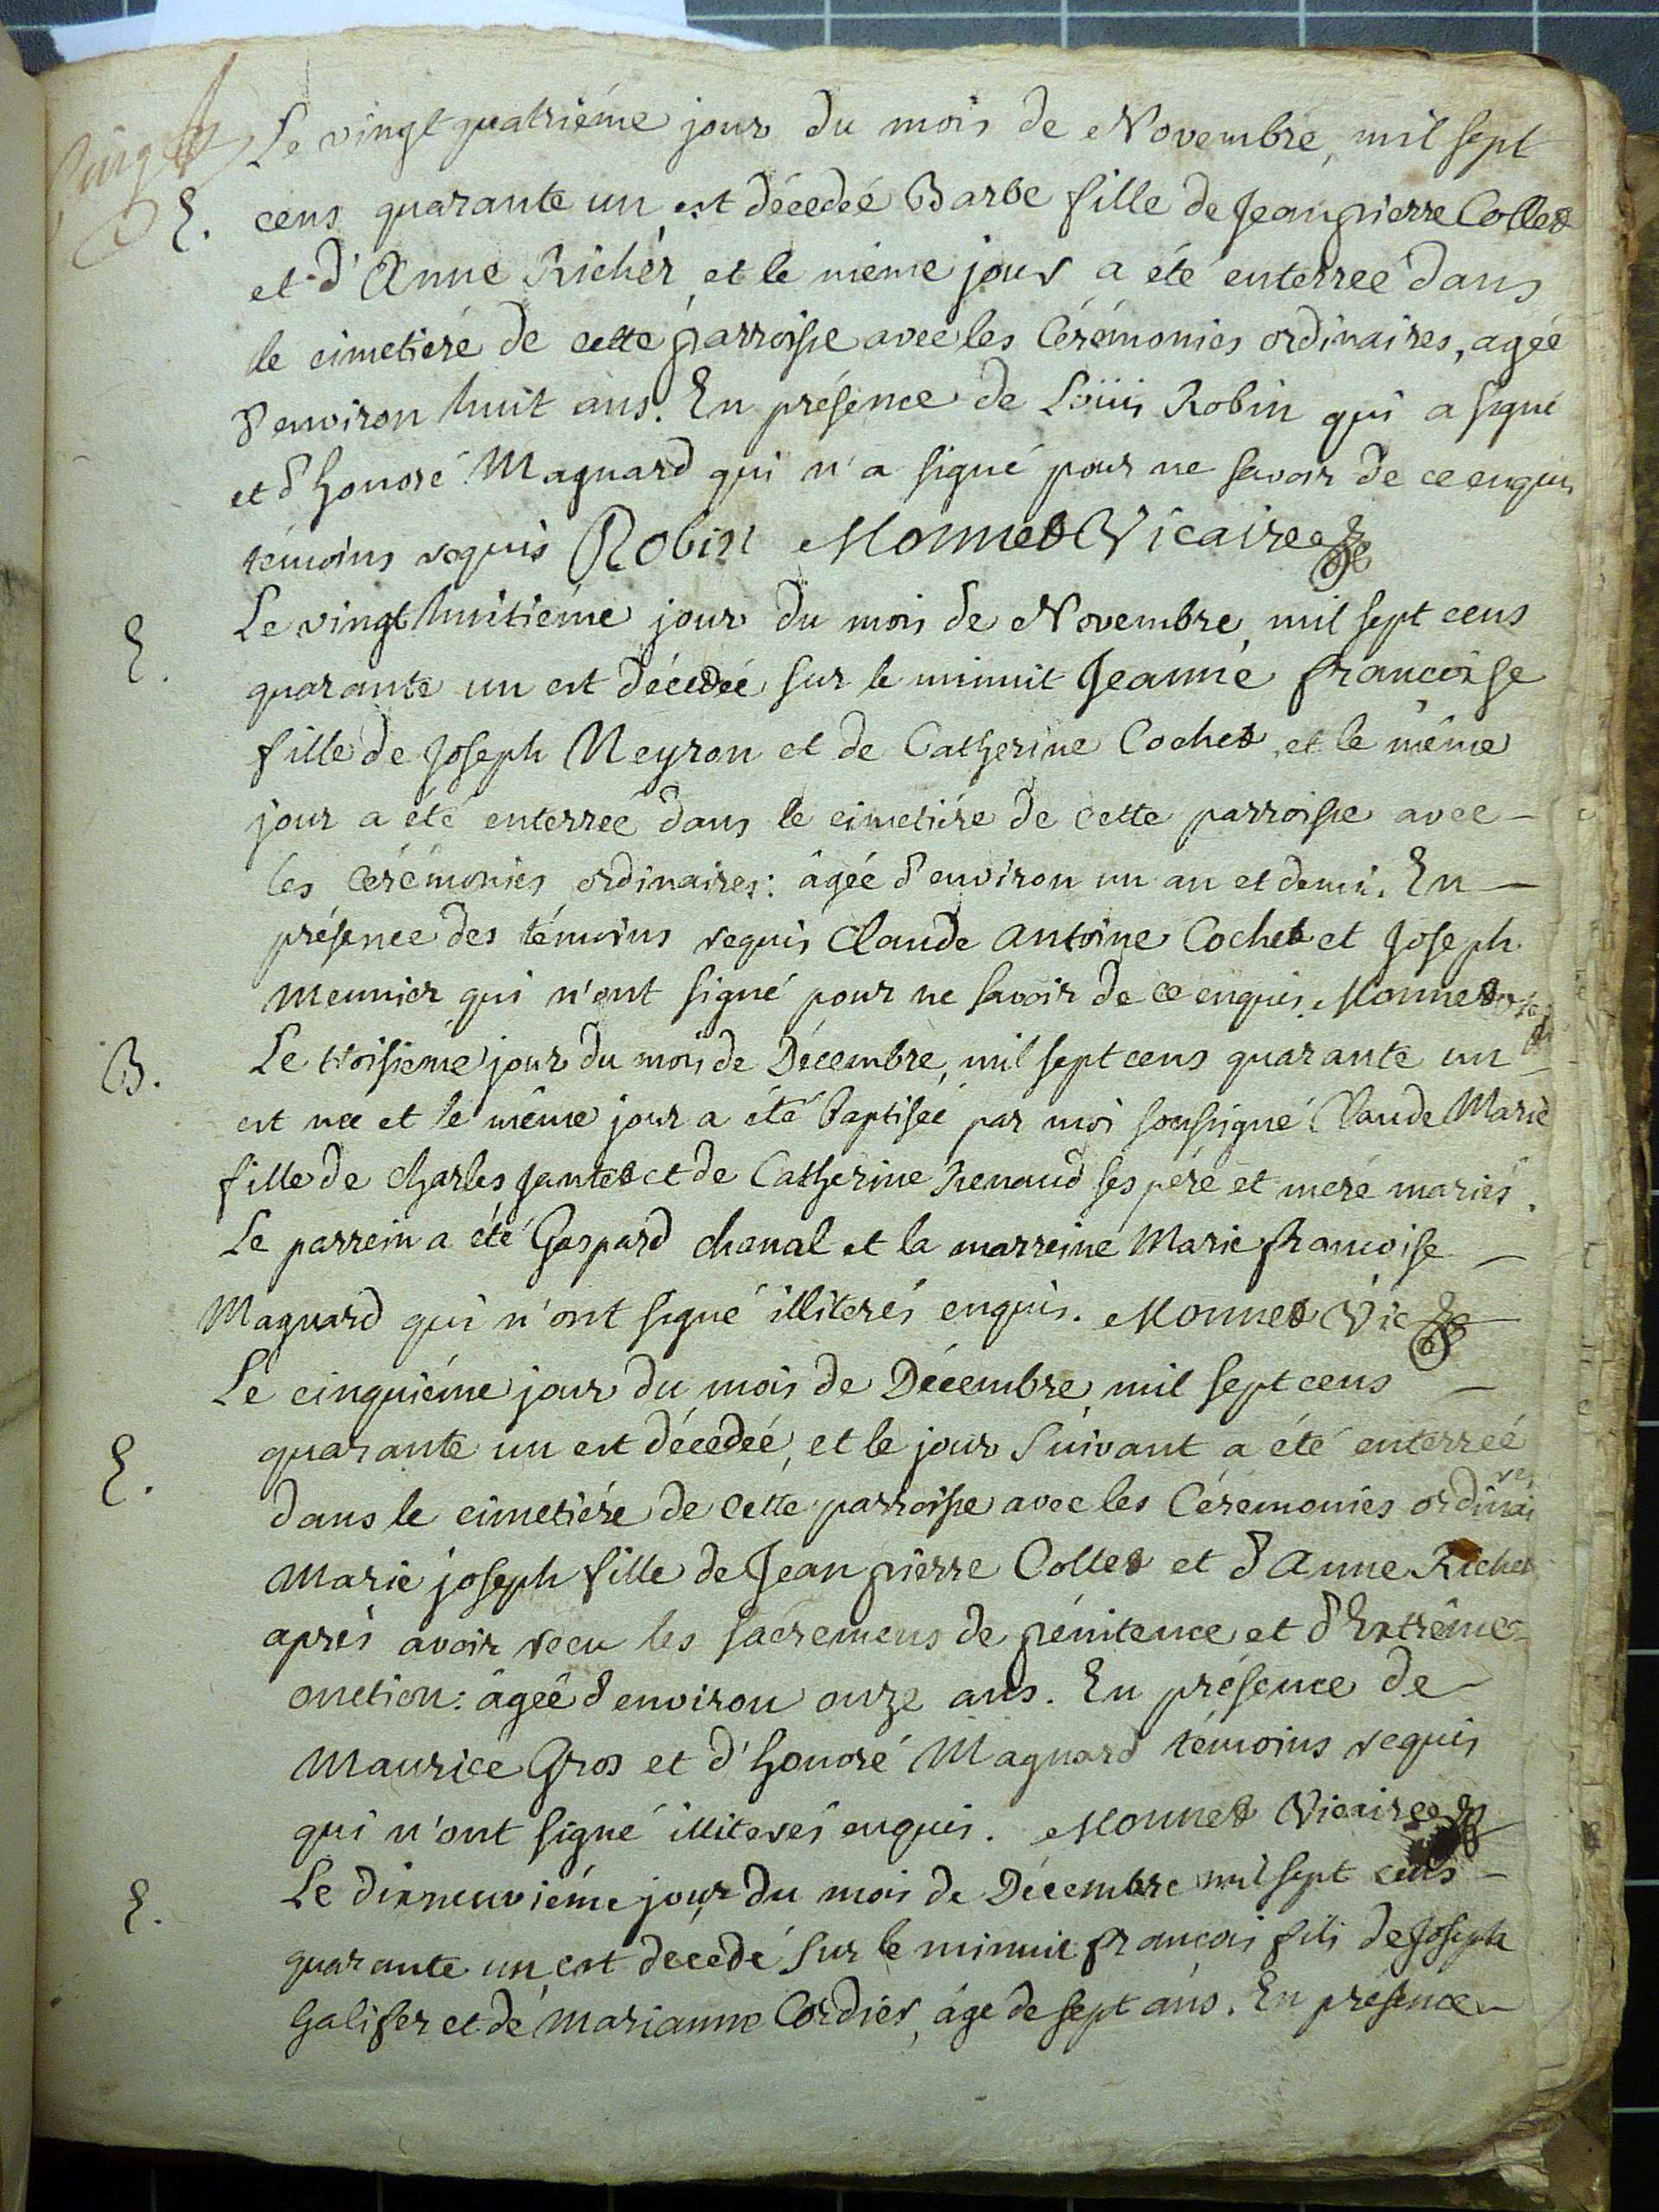 Le vingt quatriéme jour du mois de Novembre, mil sept
E. cens quarante un est décedée Barbe fille de Jean pierre Collet
et d'Anne Richer, et le méme jour a été enterreé dans
le cimetiére de cette parroisse avec les Cérémonies ordinaires, agée
d'environ huit ans. En présence de Loüis Robin qui a signé
et d'honoré Magnard qui n'a signé pour ne savoir de ce enquis
témoins requis Robin Monnet Vicaire
E. Le vingt huitiéme jour du mois de Novembre, mil sept cens
quarante un est décedée sur le minuit Jeanne francoise
fille de Joseph Neyron et de Catherine Cochet, et le même
jour a été enterreé dans le cimetiére de cette parroisse avec -
les Cérémonies ordinaires: âgée d'environ un an et demi. En -
présence des témoins requis Claude antoine Cochet et Joseph
Meunier qui n'ont signé pour ne savoir de ce enquis. Monnet
B. Le troisiéme jour du mois de Décembre, mil sept cens quarante un -
est née et le même jour a été baptisée par moi soussigné Claude Marie
fille de Charles Jantet et de Catherine Renaud ses pére et mere mariés.
Le parrein a été Gaspard chanal et la marreine Marie francoise -
Magnard qui n'ont signé illiterés enquis. Monnet Vic
Le cinquiéme jour du mois de Décembre, mil sept cens -
E. quarante un est décedée, et le jour suivant a été enterreé
dans le cimetiére de cette parroisse avec les Céremonies ordinaires
Marie joseph fille de Jean pierre Collet et d'Anne Richer
aprés avoir recu les sacremens de pénitence et d'Extrême-
onction: âgeé d'environ onze ans. En présence de -
Maurice Gros et d'honoré Magnard témoins requis
qui n'ont signé illiterés enquis. Monnet Vicaire
E. Le dixneuviéme jour du mois de Décembre mil sept cens -
quarante un est décedé sur le minuit françois fils de Joseph
Galifer et de Marianne Cordier, âgé de sept ans. En présence -